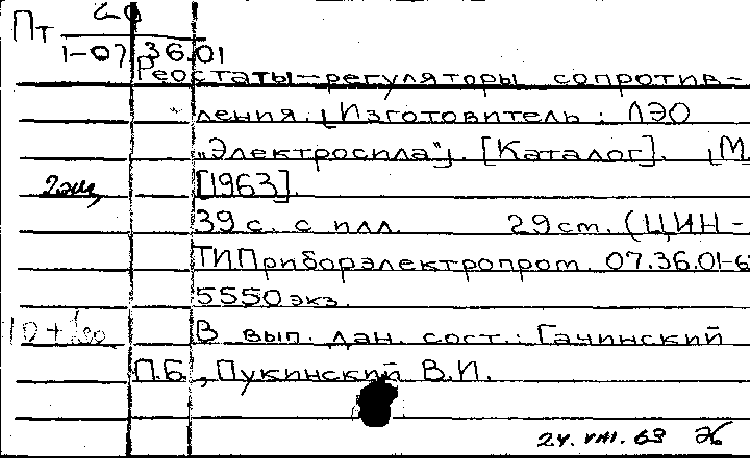 Пт 20
1-07 36.01
Реостаты-регуляторы сопротив-
ления. [Изготовитель: ЛЭО
„Электросила"]. [Каталог]. [М.
2экз, [1963].
39 с. с илл. 29 см. (ЦИН-
ТИПриборэлектропром 07.36.01-6
5550 экз.
В вып. дан. сост.: Гачинский
П.Б., Лукинский В.И.
24.VIII.63